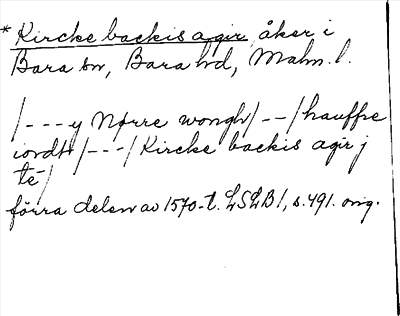 * Kircke backis agir, åker i
Bara sn, Bara hd, Malm. l.
/---y Nørre wongh/--/hauffre
iordt/---/Kircke backis agir j
tē/
förra delen av 1570-t. LSLB 1, s. 491. orig.